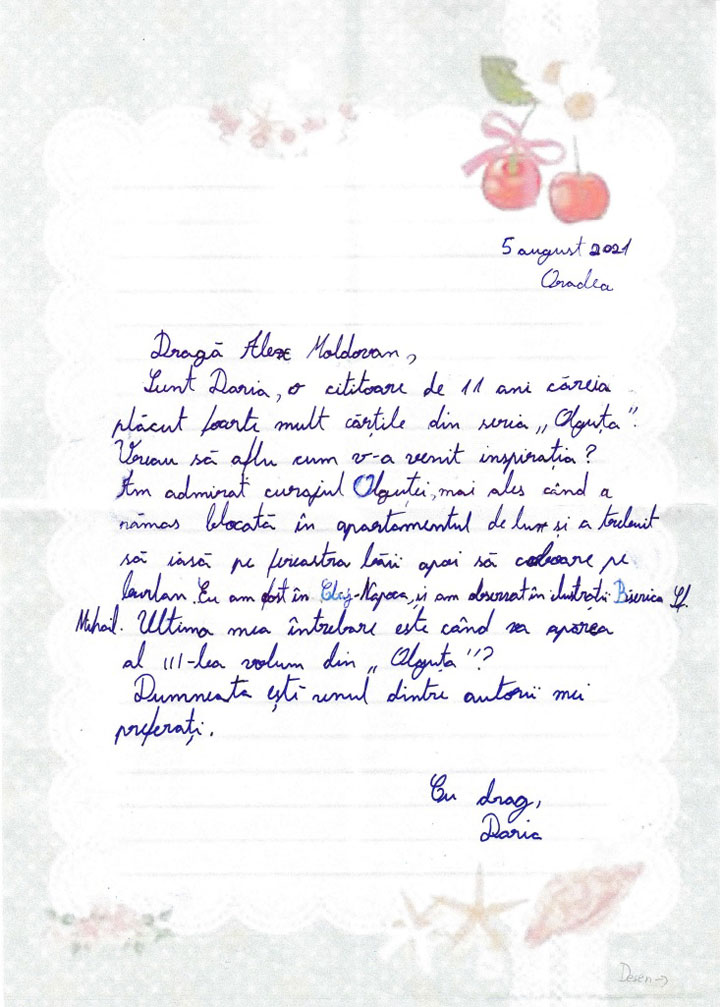 5 august 2021
Oradea
Dragă Alex Moldovan,
Sunt Daria, o cititoare de 11 ani căreia
plăcut foarte mult cărțile din seria „Olguța”.
Vreau să aflu cum v-a venit inspirația?
Am admirat curajul Olguței, mai ales când a
rămas blocată în apartamentul de lux și a trebuit
să iasă pe fereastra băii apoi să coboare pe
burlan. Eu am fost în Cluj-Napoca, și am observat în ilustrații Biserica Sf.
Mihail. Ultima mea întrebare este când va apărea
al III-lea volum din „Olguța”?
Dumneata ești unul dintre autorii mei
preferați.
Cu drag,
Daria
Desen →